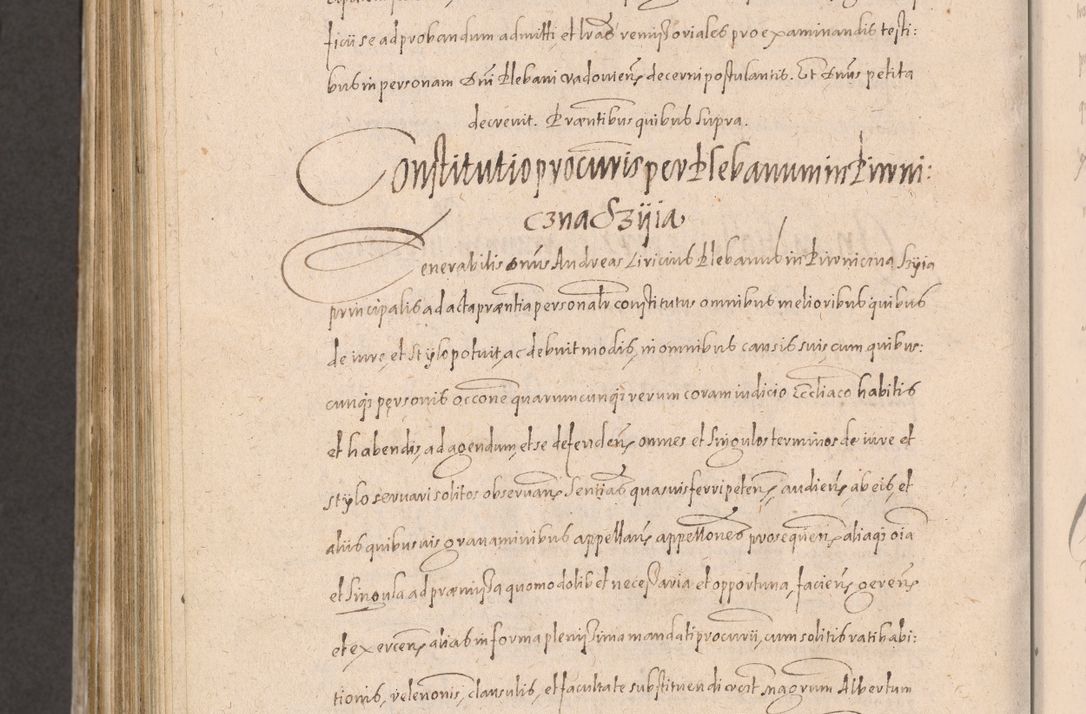 ficii se ad probandum admitti, et lras remissoriales pro examinandis testi:
bus in personam Dni Plebani vadoviens decerni postulantis. Et Dnus petita
decrevit. Præntibus quibus supra.
Constitutio procuris per Plebanum in Piwni:
czna Szÿia
Venerabilis Dnus Andreas Liricius Plebanus in Piwniczna Szÿia
principalis ad acta præntia personalr constitutus omnibus melioribus quibus
de iure, et stÿlo potuit, ac debuit modis, in omnibus causis suis, cum quibus:
cunqз personis occone quarumcunqз rerum coram iudicio Eccliaco habitis
et habendis, ad agendum, et se defenden, omnes et singulos terminos de iure et
stÿlo servari solitos observan, sentias quasvis ferri peten, audien, ab eis, et
aliis quibusvis gravaminibus appellan, appellones prosequen, aliaqз oia
et singula ad præmissa quomodolibet necessaria et opportuna, facien, geren,
et exercen, alias in forma plenissima mandati procurii, cum solitis ratihabi:
tionis, relenonis, clausulis, et facultate substituendi crcit magrum Albertum